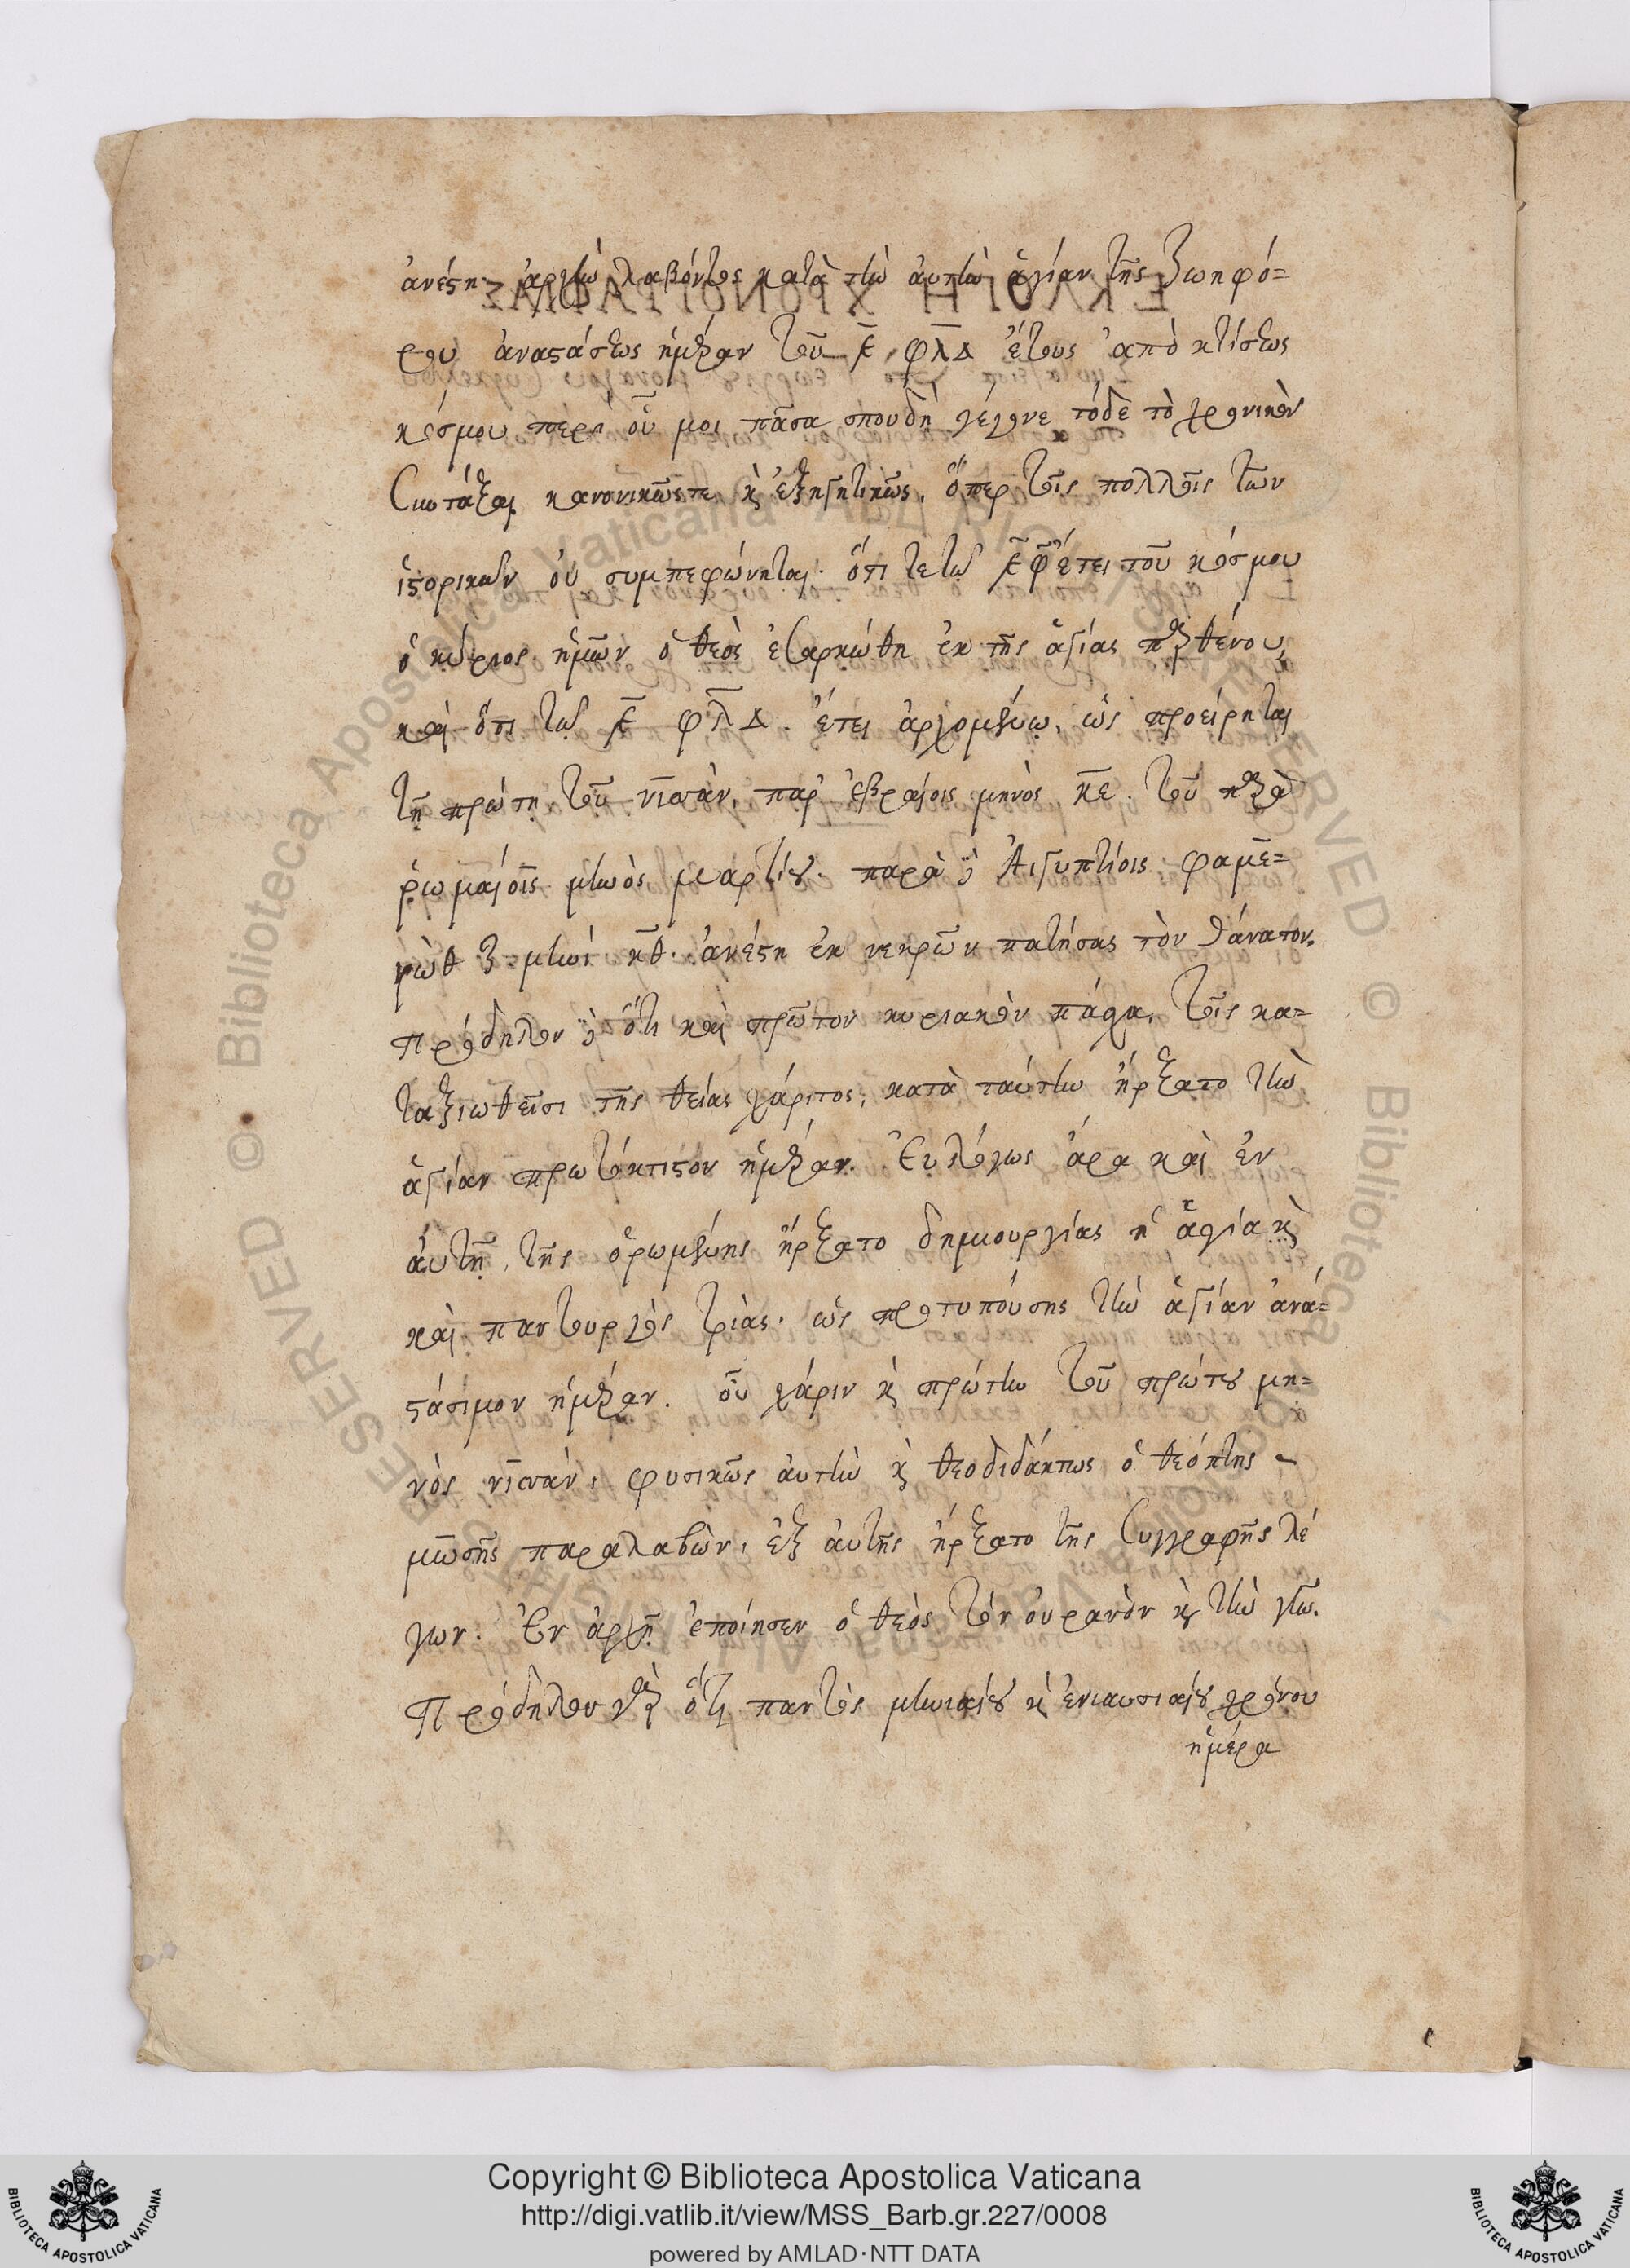 ἀνέστη· ἀρχὴν λαβόντος κατὰ τὴν αὐτὴν ἁγίαν τῆς ζωηφό=
ρου ἀναστάσεως ἡμέραν τοῦ ͵ε φλδ ἔτους ἀπὸ κτίσεως
κόσμου περὶ οὗ μοι πᾶσα σπουδὴ γέγονε τόδε τὸ χρονικὸν
συντάξαι κανονικῶς τε καὶ ἐξηγητικῶς, ὅπερ τοῖς πολλοῖς τῶν
ἱστορικῶν οὐ συμπεφώνηται· ὅτι τε τῷ ͵εφ ἔτει τοῦ κόσμου
ὁ κύριος ἡμῶν ὁ θεὸς ἐσαρκώθη ἐκ τῆς ἁγίας παρθένου,
καὶ ὅτι τῷ ͵ε φλδ. ἔτει ἀρχομένῳ, ὡς προείρηται
τῇ πρώτῃ τοῦ νισὰν, παρ' ἑβραίοις μηνὸς κε. τοῦ παρὰ
ῥωμαίοις μηνὸς μαρτίου. παρὰ δὲ Αἰγυπτίοις φαμε=
νὼθ μηνὶ κθ. ἀνέστη ἐκ νεκρῶν πατήσας τὸν θάνατον.
Πρόδηλον δὲ ὅτι καὶ πρῶτον κυριακὸν πάσχα, τοῖς κα=
ταξιωθεῖσι τῆς θείας χάριτος, κατὰ ταύτην ἤρξατο τὴν
ἁγίαν πρωτόκτιστον ἡμέραν. Εὐλόγως ἄρα καὶ ἐν
αὐτῇ, τῆς ὁρωμένης ἤρξατο δημιουργίας ἡ ἁγία καὶ
καὶ παντουργὸς τριὰς. ὡς προτυπούσης τὴν ἁγίαν ἀνα=
στάσιμον ἡμέραν. οὗ χάριν καὶ πρώτην τοῦ πρώτου μη=
νὸς νισὰν, φυσικῶς αὐτὴν καὶ θεοδιδάκτως ὁ θεόπτης
μωσῆς παραλαβὼν, ἐξ αὐτῆς ἤρξατο τῆς συγγραφῆς λέ
γων. Ἐν ἀρχῇ ἐποίησεν ὁ θεὸς τὸν οὐρανὸν καὶ τὴν γῆν.
Πρόδηλον γὰρ ὅτι παντὸς μηνιαίου καὶ ἐνιαυσιαίου χρόνου
ἡμέρα
Copyright © Biblioteca Apostolica Vaticana
http://digi.vatlib.it/view/MSS_Barb.gr.227/0008
powered by AMLAD·NTT DATA